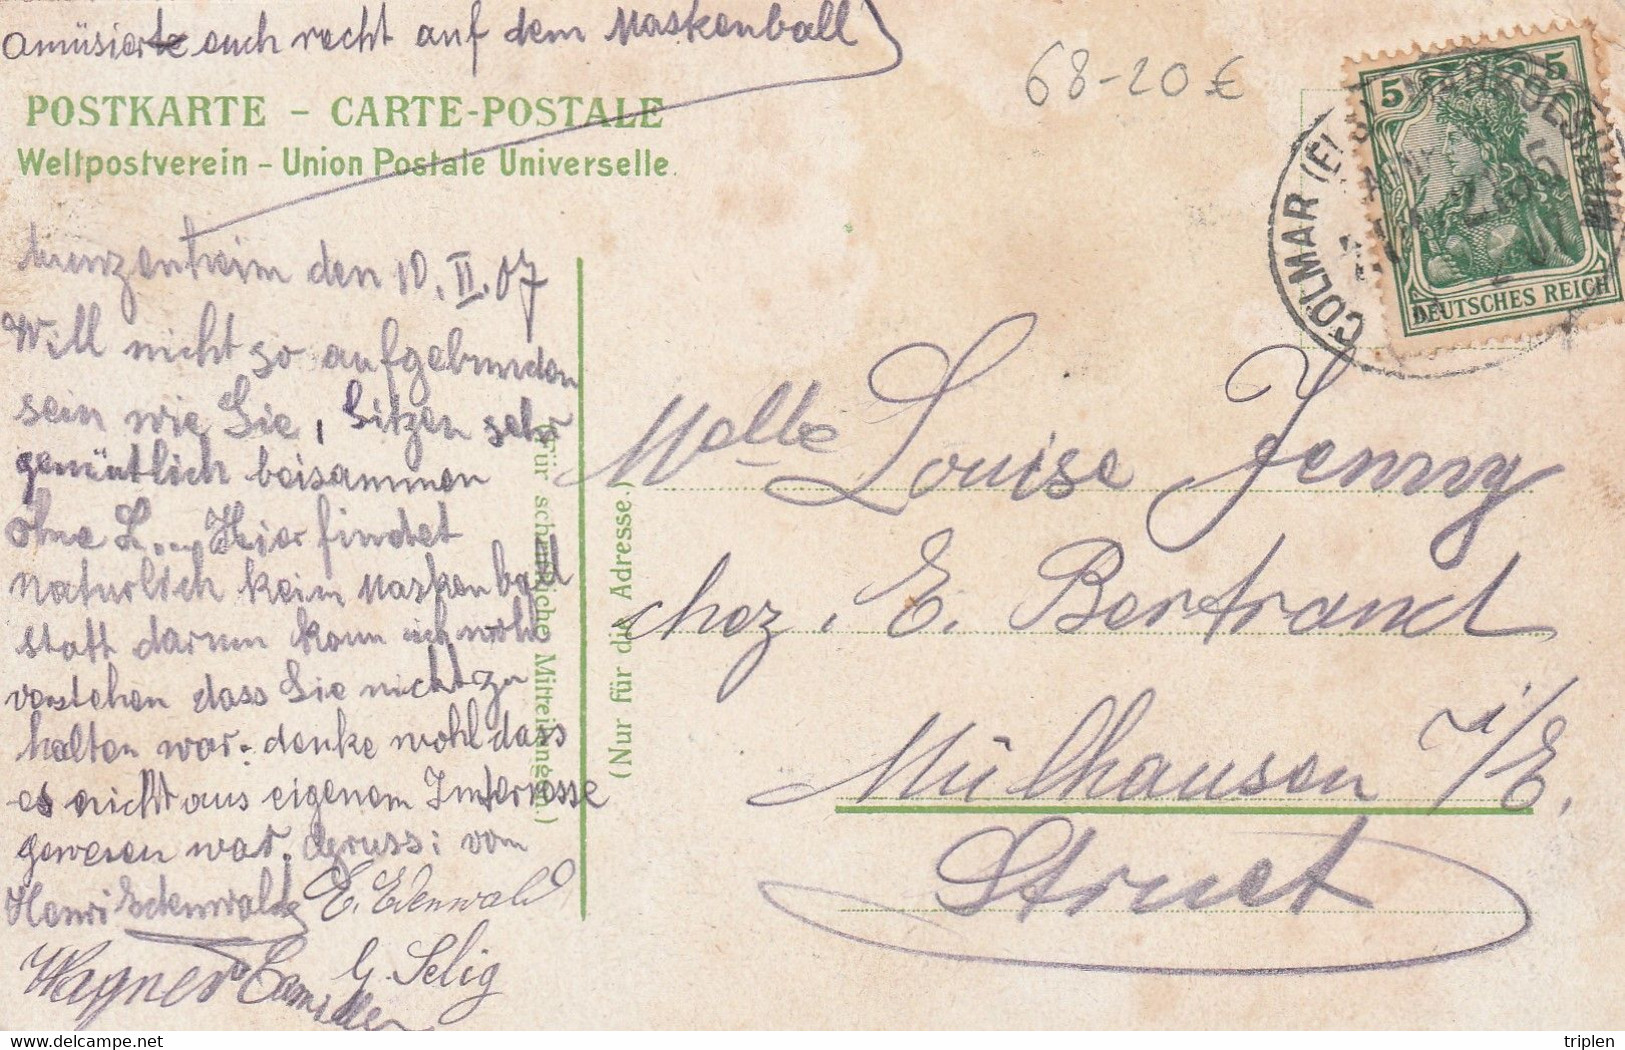 amüsierte euch recht auf dem Maskenball
68-20€
POSTKARTE – CARTE-POSTALE
Weltpostverein – Union Postale Universelle.
5 5
DEUTSCHES REICH
COLMAR
Kunzenheim den 10. II. 07
Will nicht so aufgebunden
sein wie Sie, Sitzen sehr
gemütlich beisammen
ohne L.... Hier findet
natürlich kein Maskenball
statt darum kann ich wohl
verstehen dass Sie nicht zu
halten war. denke wohl dass
es nicht aus eigenem Interesse
gewesen war. Gruss: vom
Henri Edenwald E. Edenwald
Wagner Camille G. Selig
(Für schriftliche Mitteilungen.)
(Nur für die Adresse.)
Melle Louise Jenny
chez. E. Bertrand
Mülhausen i/E.
Struet
www.delcampe.net
triplen